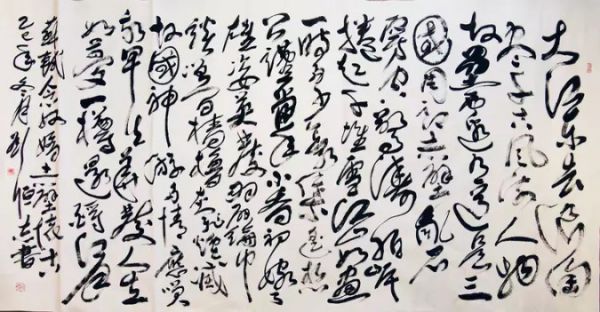 大江东去浪淘
尽千古风流人物
故垒西边人道是三
國周郎赤壁乱石
穿空惊涛拍岸
捲起千堆雪江山如画
一时多少豪杰遥想
公瑾当年小乔初嫁了
雄姿英发羽扇纶巾
谈笑间樯橹灰飞烟灭
故國神游多情应笑
我早生华发人生
如梦一樽还酹江月
苏轼念奴娇赤壁怀古
年冬月书